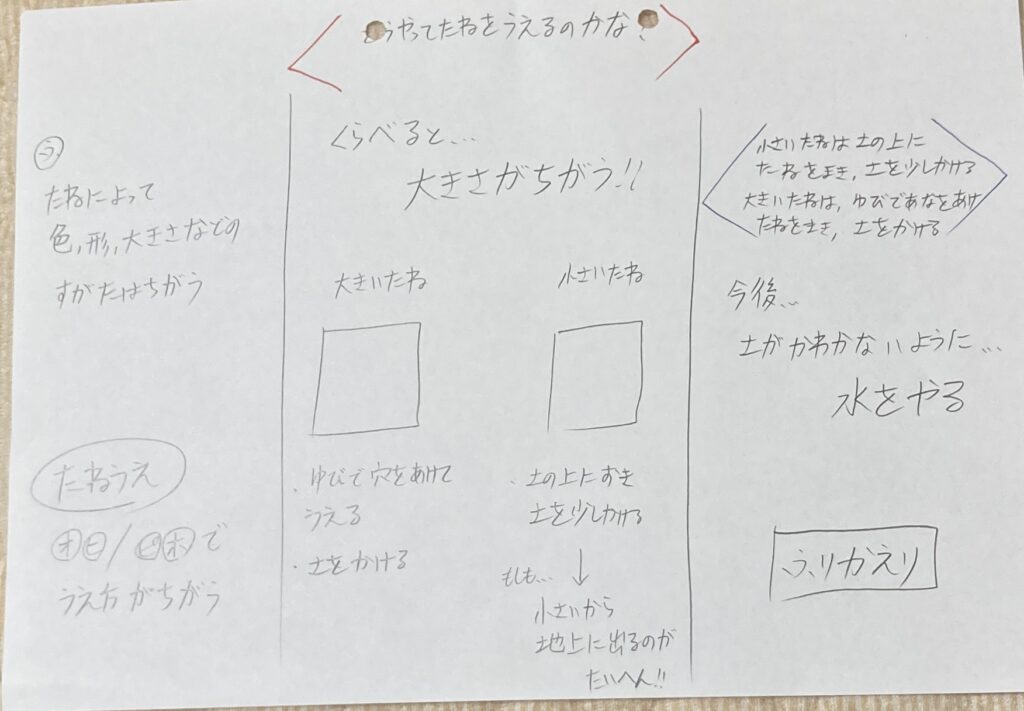 どうやってたねをうえるのかな?
ふ
たねによって
色,形,大きさなどの
すがたはちがう
たねうえ
うえ方がちがう
くらべると…
大きさがちがう!!
大きいたね
小さいたね
・ゆびで穴をあけて
うえる
・土をかける
・土の上におき
土を少しかける
もしも…
小さいから
地上に出るのが
たいへん!!
小さいたねは土の上に
たねをまき,土を少しかける
大きいたねは,ゆびであなをあけ
たねをまき,土をかける
今後…
土がかわかないように…
水をやる
ふりかえり